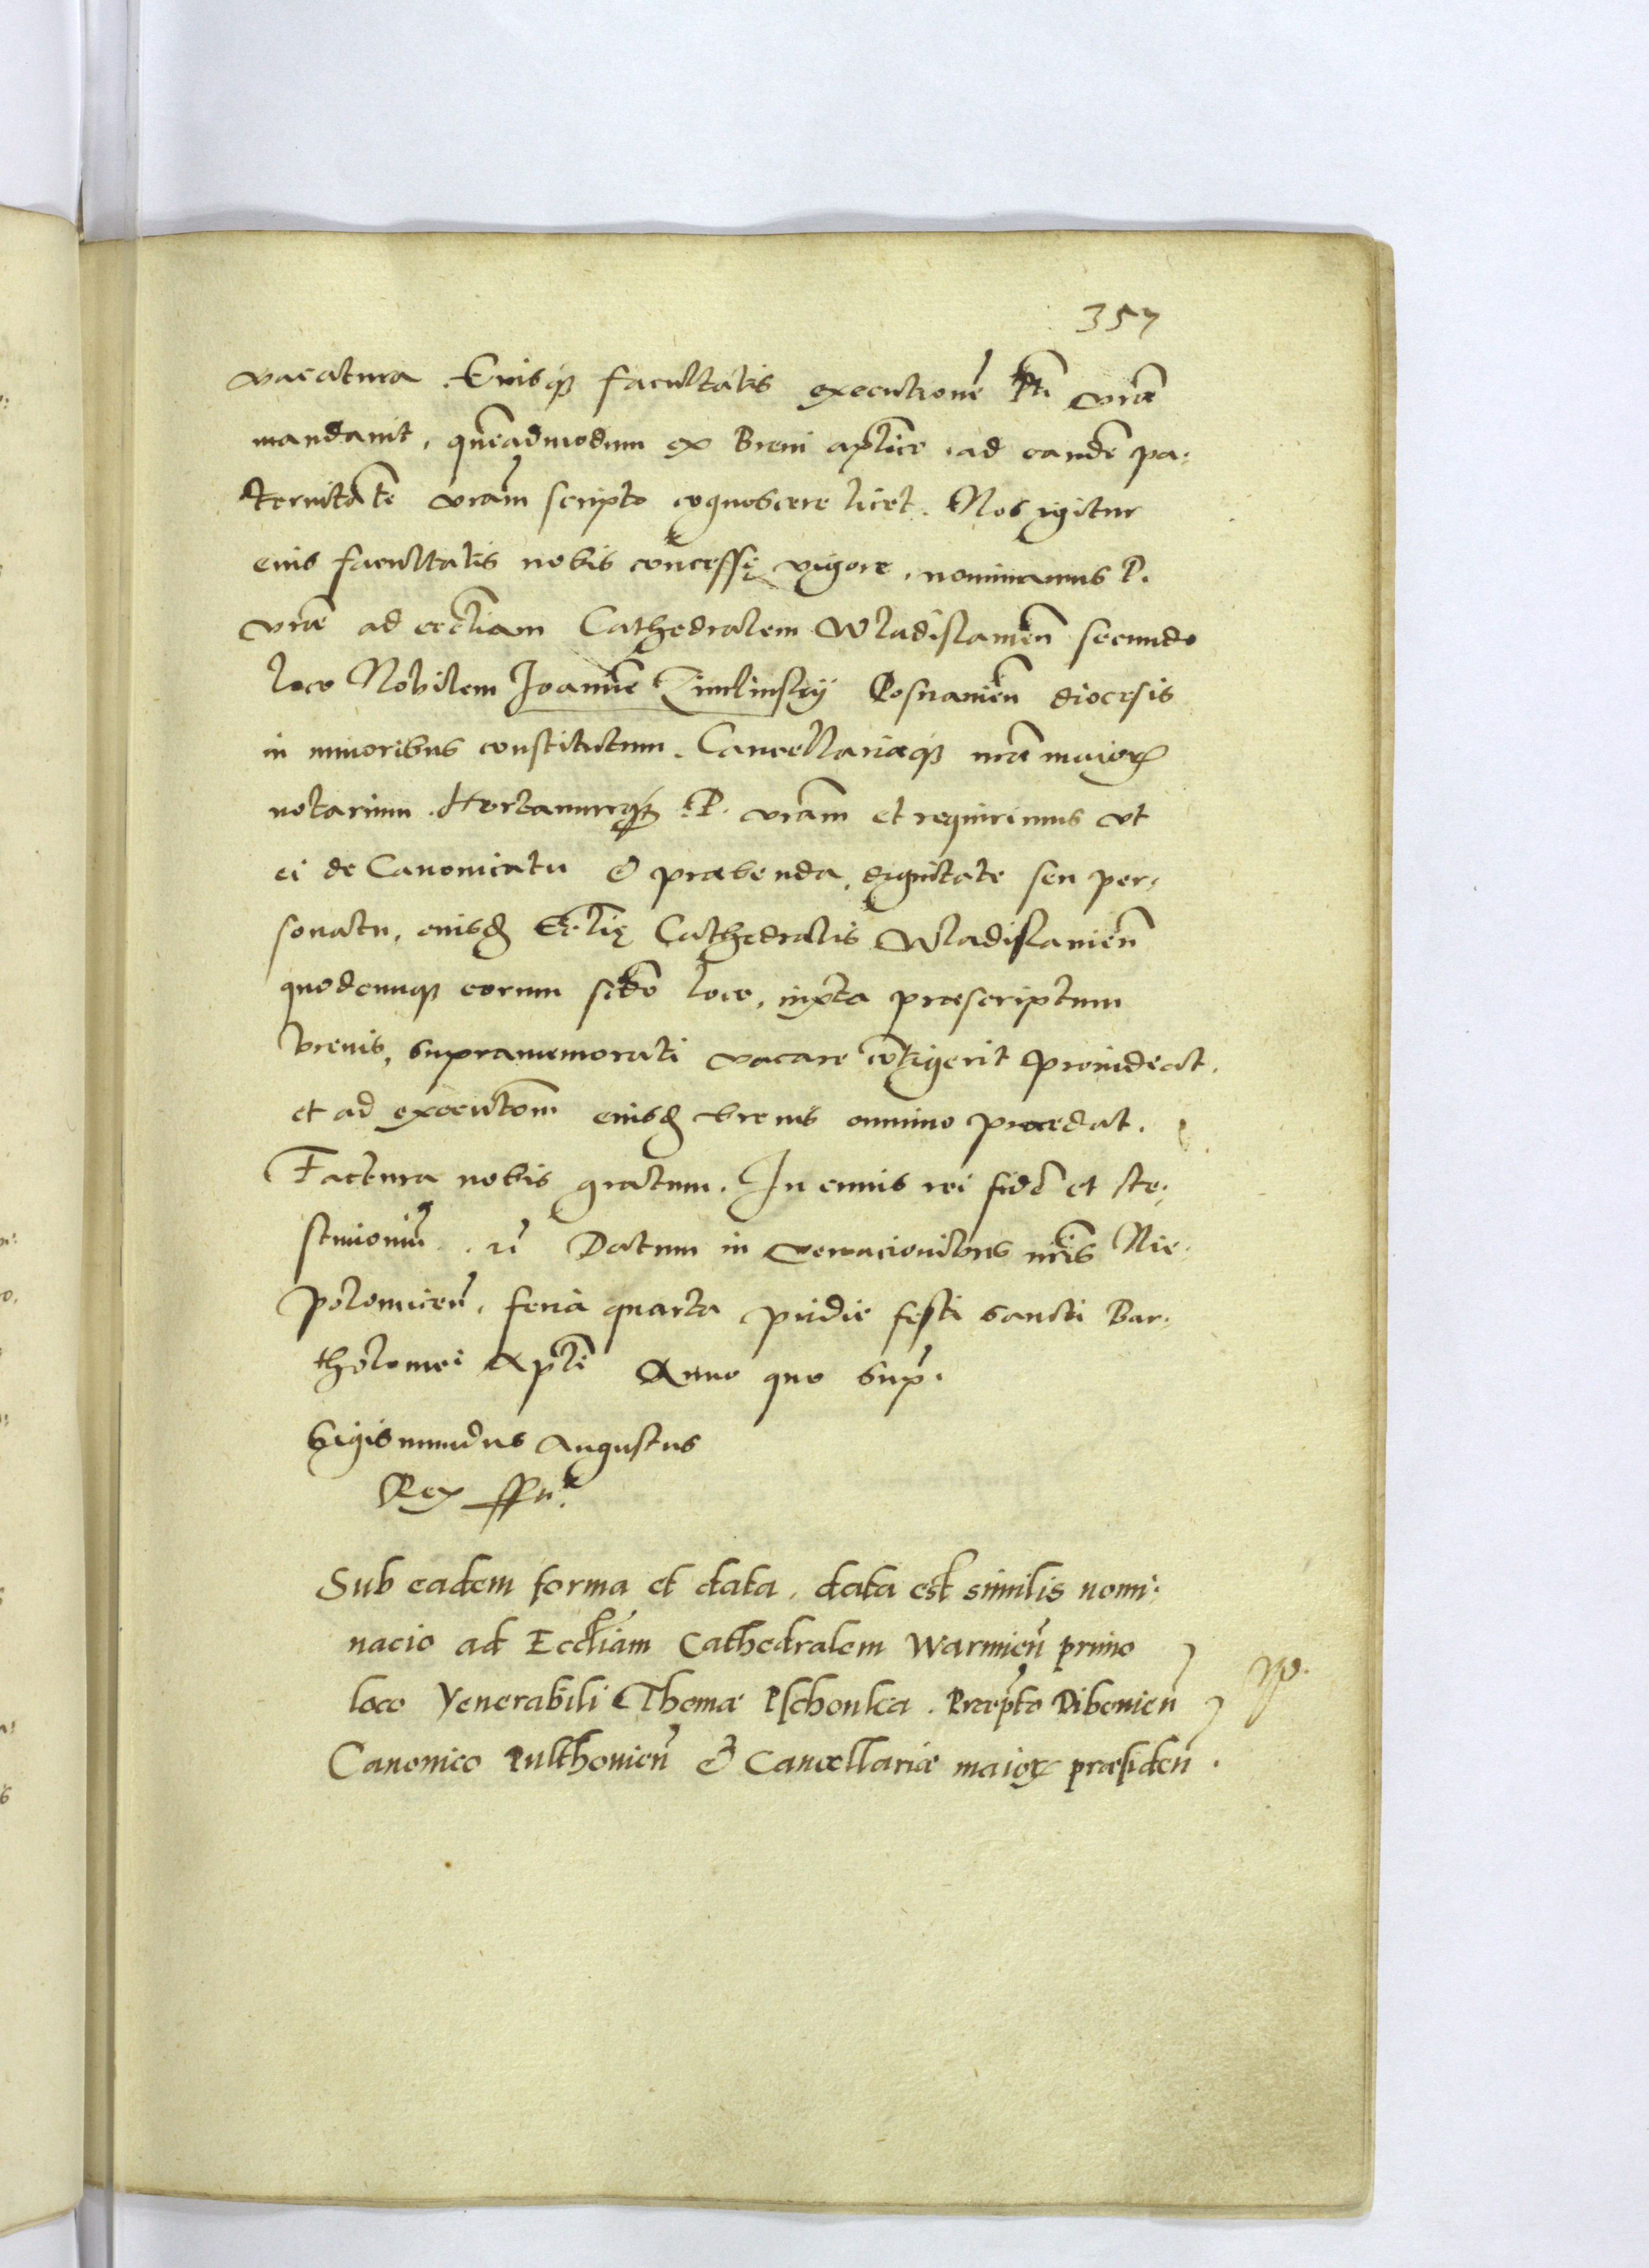 357
vacatura. Eiusq̃ facultatis executionẽ Pti vrae
mandauit, quẽadmodum ex Breui aplico ad eandẽ pa-
ternitatẽ vrãm scripto cognoscere licet. Nos igitur
eius facultatis nobis concessę vigore, nominamus P.
vrae ad eccliam Cathedralem Wladislauieñ secundo
loco Nobilem Joannẽ Posnanieñ diocesis
in minoribus constitutum. Cancellariaeq̃ nrae maioris
notarium. Hortamurq̃ P. vrãm et requirimus vt
ei de Canonicatu & praebenda, dignitate seu per-
sonatu, eiusd Eccłię Cathedralis Wladislauieñ
quodcunq̃ eorum scďo loco, iuxta praescriptum
breuis, supramemorati vacare cõtigerit prouideat.
et ad executom eiusd breuis omnino procedat.
Factura nobis gratum. In cuius rei fidẽ et te-
stimoniũ. Datum in venacionibus nris Nie-
polomiceñ, feria quarta pridie festi sancti Bar-
tholomei Apłi Anno quo sup̃.
Sigismundus Augustus
Rex sst
Sub eadem forma et data, data est similis nomi-
nacio ad Eccliam Cathedralem Warmieñ primo
loco Venerabili Thomae Pschonka. Praep̃to Dibouieñ
Canonico Pulthouieñ & Cancellariae maioris praesideñ.